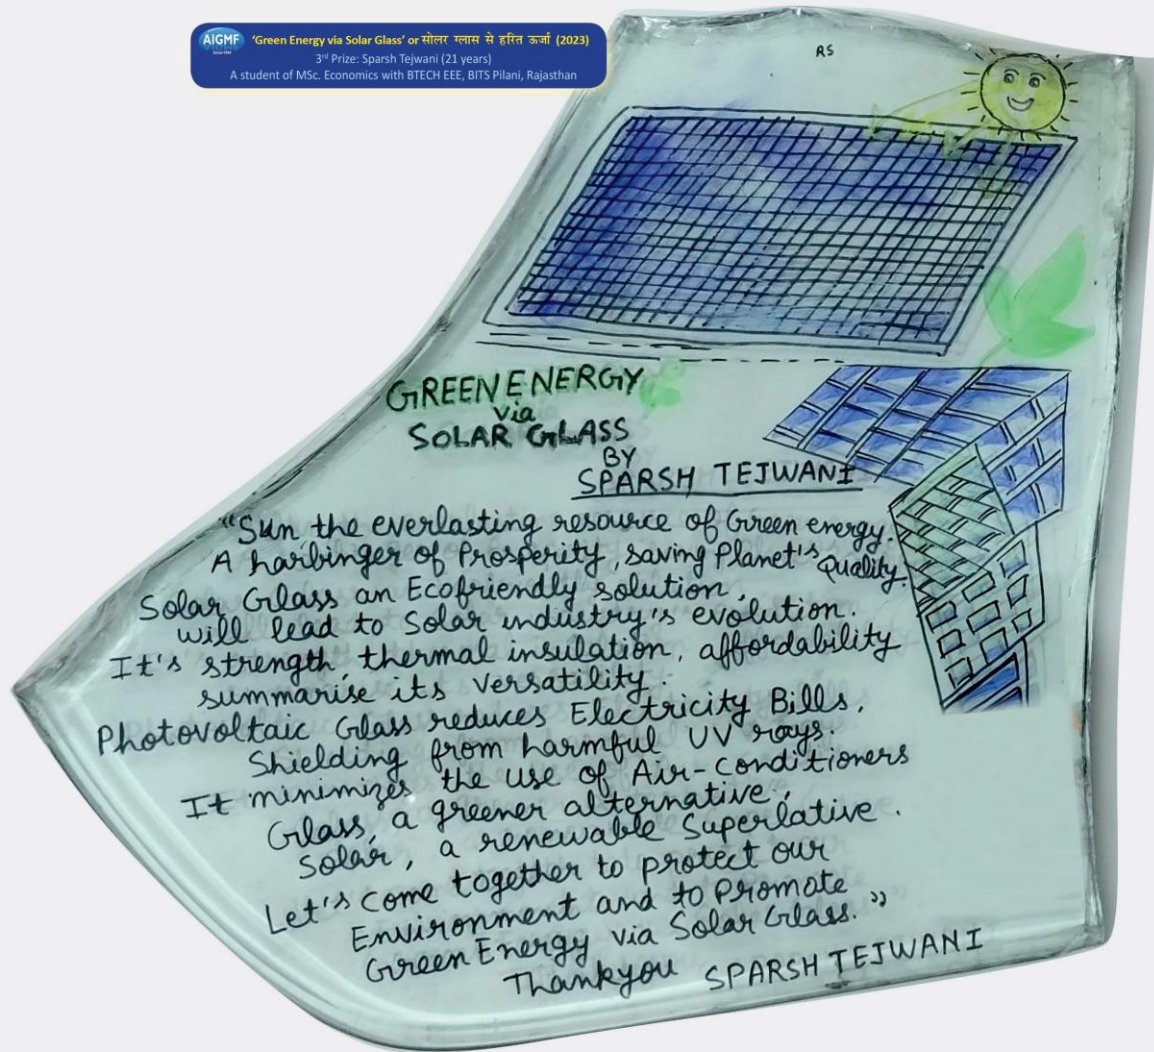 AIGMF
Since 1944
'Green Energy via Solar Glass' or सोलर ग्लास से हरित ऊर्जा (2023)
3rd Prize: Sparsh Tejwani (21 years)
A student of MSc. Economics with BTECH EEE, BITS Pilani, Rajasthan
RS
GREEN ENERGY
via
SOLAR GLASS
BY
SPARSH TEJWANI
"Sun the everlasting resource of Green energy.
A harbinger of Prosperity, saving Planet's Quality.
Solar Glass an Ecofriendly solution,
will lead to Solar industry's evolution.
It's strength, thermal insulation, affordability
summarise its versatility.
Photovoltaic Glass reduces Electricity Bills,
Shielding from harmful UV rays.
It minimizes the use of Air-Conditioners
Glass, a greener alternative,
Solar, a renewable Superlative.
Let's come together to protect our
Environment and to Promote
Green Energy via Solar Glass."
Thankyou SPARSH TEJWANI